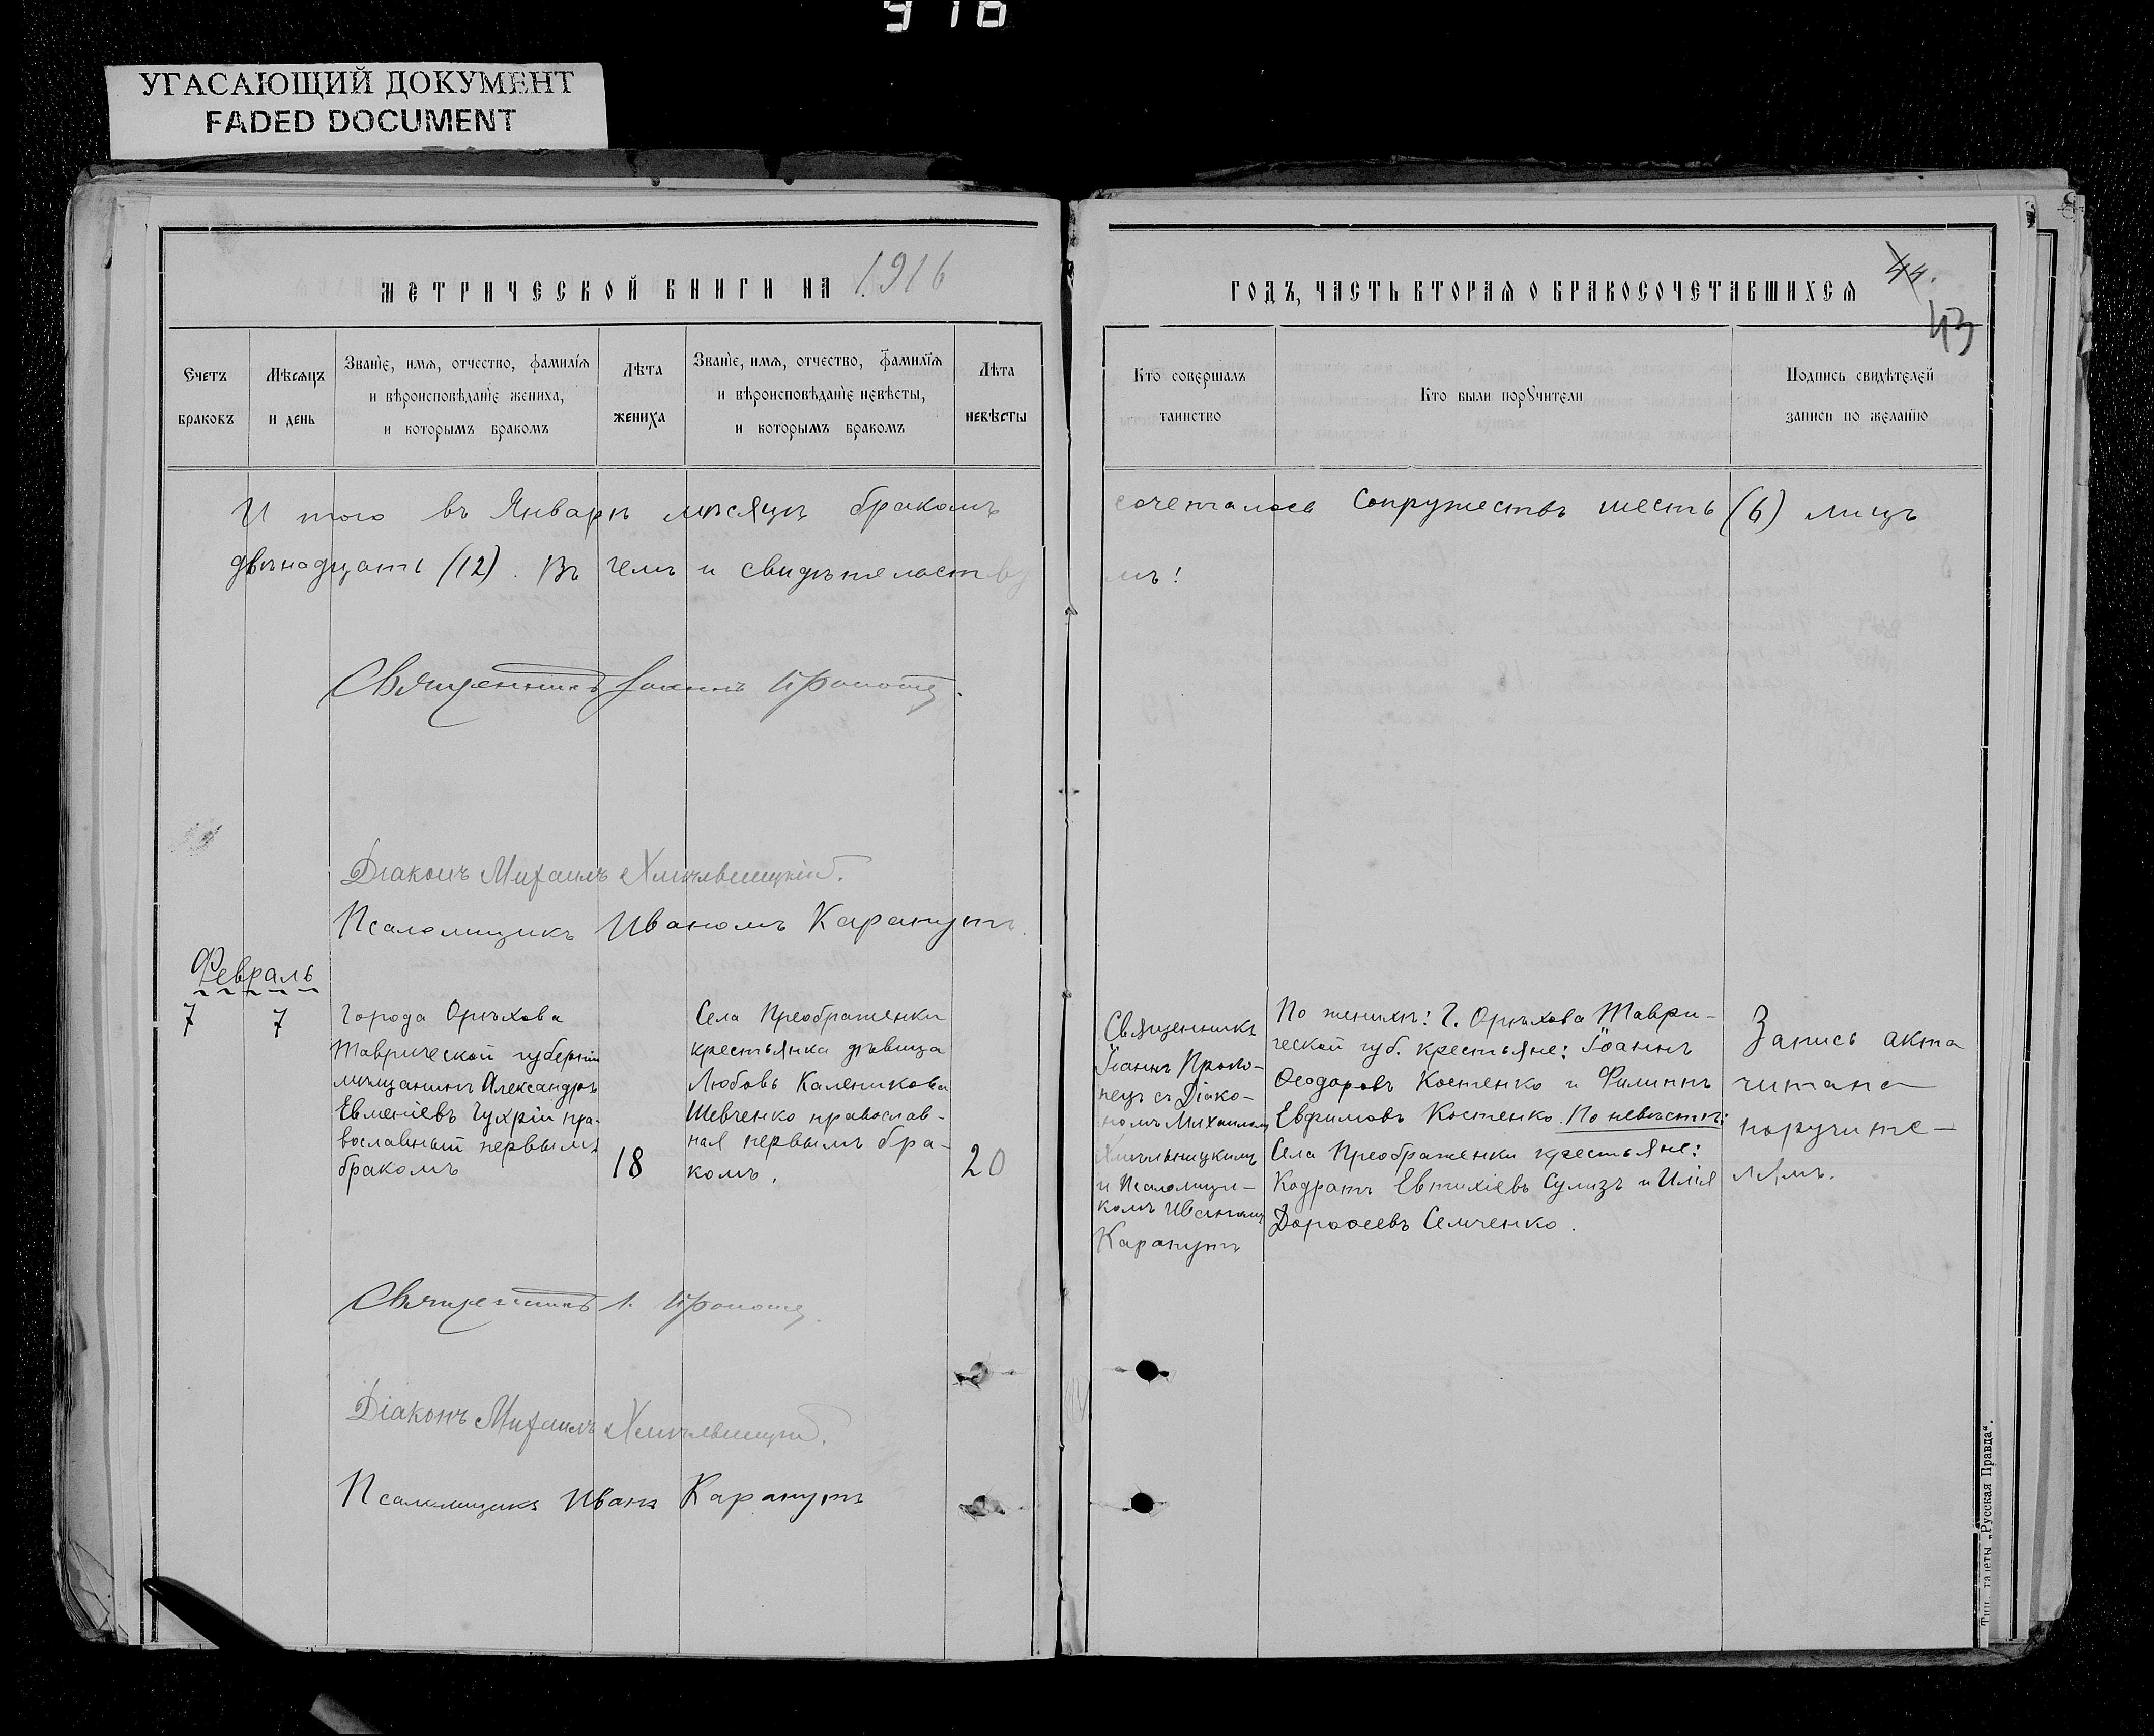 916
УГАСАЮЩИЙ ДОКУМЕНТ
FADED DOCUMENT
МЕТРИЧЕСКОЙ КНИГИ НА 1916
Счетъ браковъ
Мѣсяцъ и день
Званіе, имя, отчество, фамилія
и вѣроисповѣданіе жениха,
и которымъ бракомъ
Лѣта жениха
Званіе, имя, отчество, фамилія
и вѣроисповѣданіе невѣсты,
и которымъ бракомъ
Лѣта невѣсты
И того въ Январѣ мѣсяцѣ бракомъ
двѣнадцать (12). Въ чемъ и свидѣтельству
Священникъ Іоаннъ Прокопецъ.
Діаконъ Михаилъ Хмѣльницкій.
Псаломщикъ Иваномъ Карапутъ.
Февраль
7
7
Города Орѣхова
Таврической губерніи
мѣщанинъ Александръ
Евменіевъ Чухрій пра-
вославный первымъ
бракомъ
18
Села Преображенки
крестьянка дѣвица
Любовь Каленикова
Шевченко православ-
ная первымъ бра-
комъ.
20
Священникъ І. Прокопецъ.
Діаконъ Михаилъ Хмѣльницкій.
Псаломщикъ Иванъ Карапутъ
ГОДЪ, ЧАСТЬ ВТОРАЯ О БРАКОСОЧЕТАВШИХСЯ
44.
43
Кто совершалъ
таинство
Кто были поручители
Подпись свидѣтелей
записи по желанію
сочеталось сопружествъ шесть (6) лицъ
мъ!
Священникъ
Іоаннъ Проко-
пецъ съ Діако-
номъ Михаиломъ
Хмѣльницкимъ
и Псаломщи-
комъ Иваномъ
Карапутъ
По женихѣ: Г. Орѣхова Таври-
ческой губ. крестьяне: Іоаннъ
Ѳеодоровъ Костенко и Филиппъ
Евфимовъ Костенко. По невѣстѣ:
Села Преображенки крестьяне:
Кодратъ Евтихіевъ Сулизъ и Илія
Дороѳеевъ Семченко.
Запись акта
читана
поручите-
лямъ.
Тип. газеты „Русская Правда“.